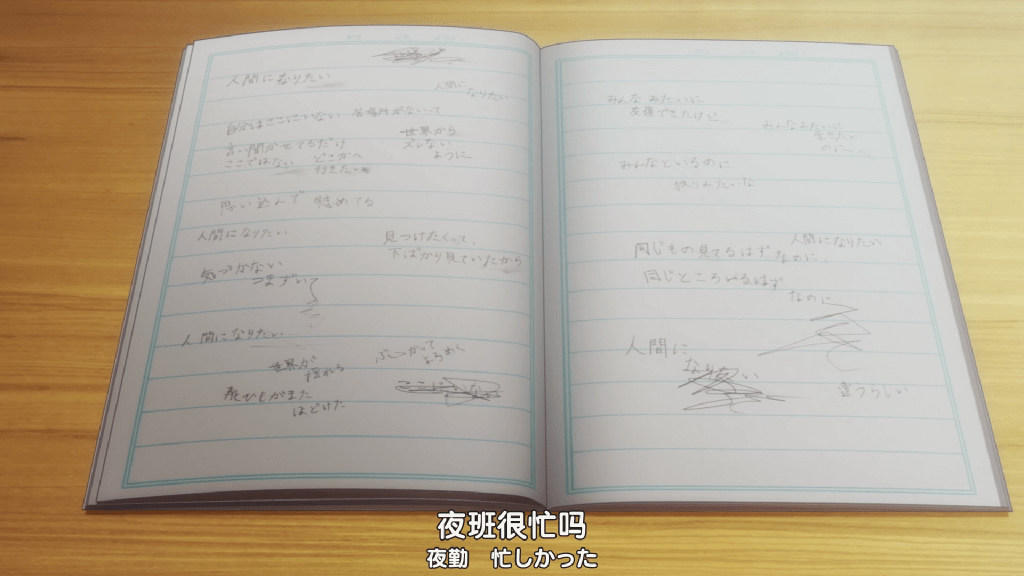 人間になりたい
人間に
なりたい
自分はここにいない 居場所がないって
言い聞かせてるだけ
ここではない どこかへ
行きたい
世界から
ズレない
ように
思い込んで 慰めてる
人間になりたい
見つけたくって、
下ばかり見ていたから
気づかない
つまずいて
人間になりたい
世界が
揺れる
ぶつかって
よろめく
靴ひもがまた
ほどけた
みんなみたいに
みんなみたいに
のに
みんなといるのに
独りみたいな
人間になりたい
同じもの見てるはずなのに、
同じところいるはず
なのに
人間に
なりたい
違うらしい
夜班很忙吗
夜勤 忙しかった